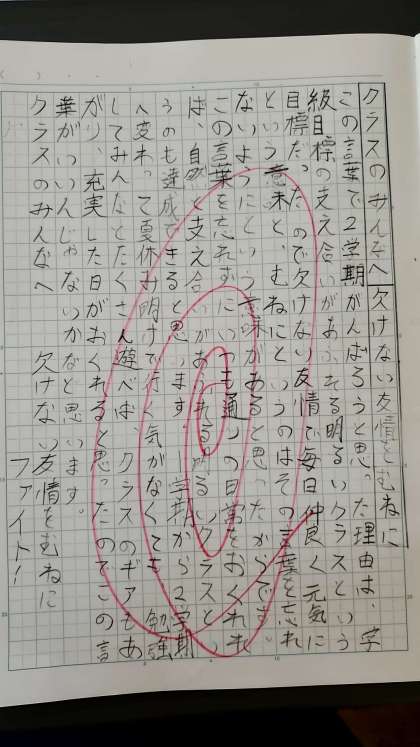 クラスのみんなへ 欠けない友情をむねに
この言葉で2学期がんばろうと思った理由は、学
級目標の支え合いがあふれる明るいクラスという
目標だったので欠けない友情で毎日仲良く元気に
という意味と、むねにというのはその言葉を忘れ
ないようにという意味があると思ったからです。
この言葉を忘れずにいつも通りの日常をおくれれ
ば、自然と支え合いがあふれる明るいクラスとい
うのも達成できると思います。1学期から2学期
へ変わって夏休み明けで行く気がなくても勉強
してみんなとたくさん遊べば、クラスのギアもあ
がり、充実した日がおくれると思ったのでこの言
葉がいいんじゃないかなと思います。
クラスのみんなへ 欠けない友情をむねに
ファイト!